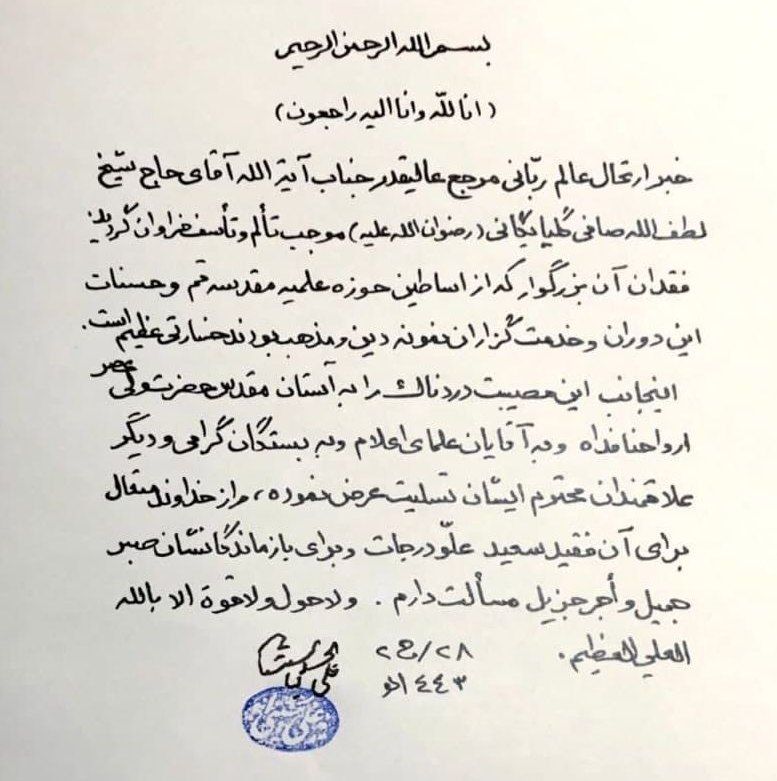 بسم الله الرحمن الرحيم
(انا لله وانا اليه راجعون)
خبر ارتحال عالم ربّانی مرجع عاليقدر جناب آية الله آقای حاج شيخ
لطف الله صافی گلپايگانی (رضوان الله عليه) موجب تألم وتأسف فراوان گرديد
فقدان آن بزرگوار كه از اساطين حوزه علميه مقدسه قم و حسنات
اين دوران و خدمت گزاران نمونه دين و مذهب بودند خسارتی عظيم است.
اينجانب اين مصيبت دردناك را به آستان مقدس حضرت ولی عصر
ارواحنا فداه و به آقايان علمای اعلام و به بستگان گرامی و ديگر
علاقمندان محترم ايشان تسليت عرض نموده، و از خداوند متعال
برای آن فقيد سعيد علوّ درجات و برای بازماندگانشان صبر
جميل و أجر جزيل مسألت دارم. ولا حول ولا قوة الا بالله
العلي العظيم.
٢٨/ج٢
١٤٤٣هـ